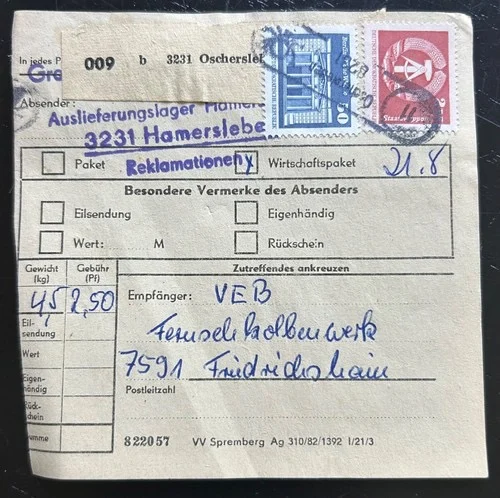 009 b 3231 Oschersle
In jedes P
Gre
DEUTSCHE DEMOKRATISCHE REPUBLIK
50
Absender:
Auslieferungslager Hamers
3231 Hamerslebe
Reklamationen
Paket
x Wirtschaftspaket 21.8
Besondere Vermerke des Absenders
Eilsendung
Eigenhändig
Wert: M
Rückschein
Gewicht (kg)
Gebühr (Pf)
Zutreffendes ankreuzen
4,5 2,50
Empfänger: VEB
Fernsehkolbenwerk
7591 Friedrichshain
Postleitzahl
Eil-
sendung
Wert
Eigen-
händig
Rück-
schein
umme
822057 VV Spremberg Ag 310/82/1392 I/21/3